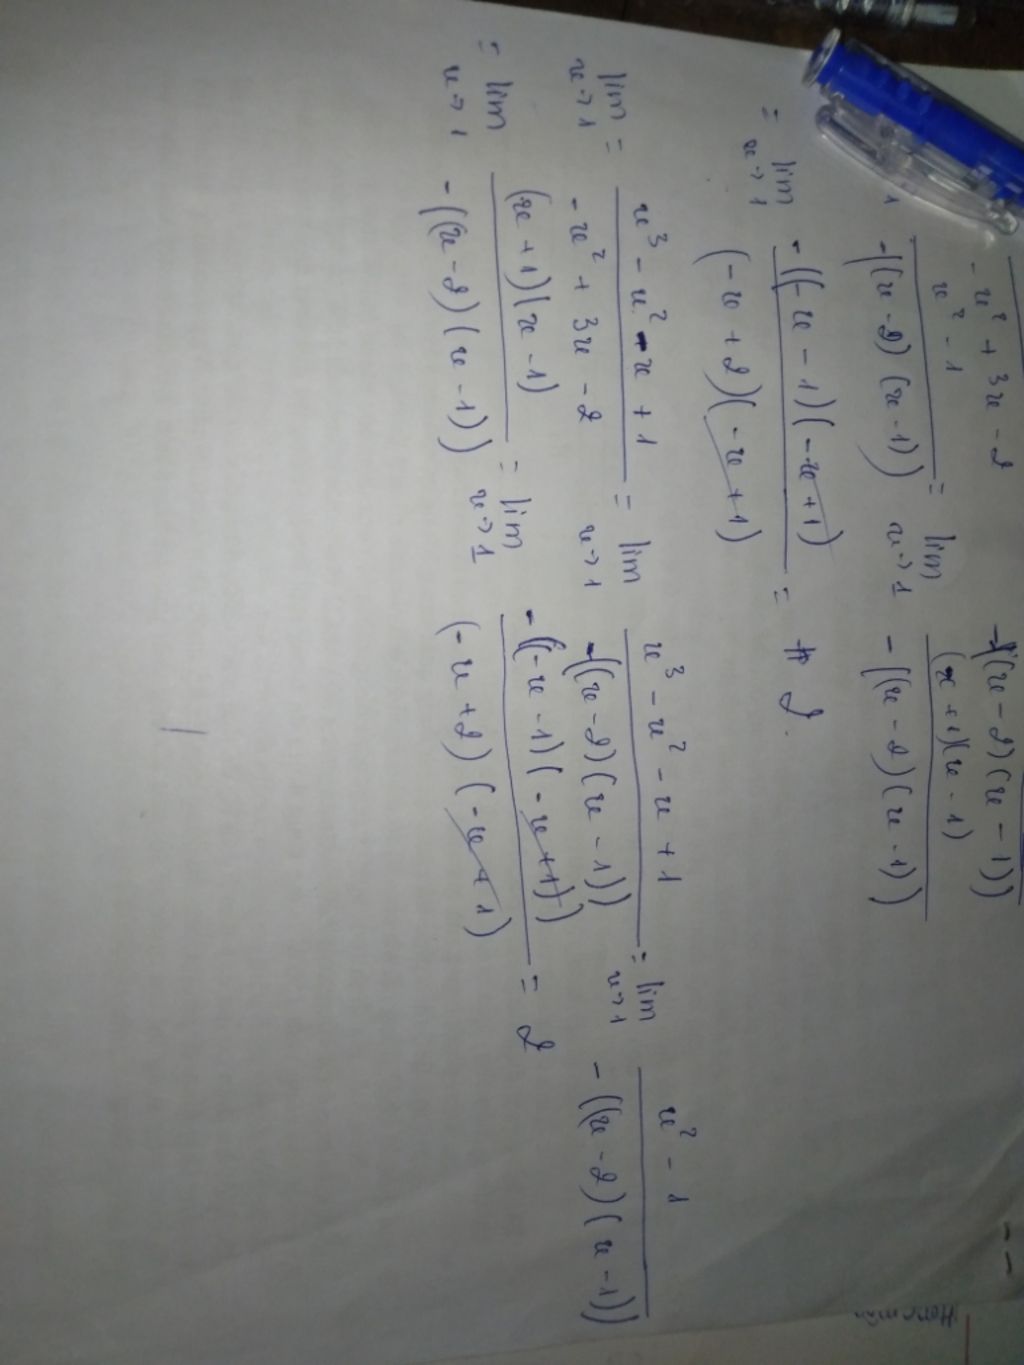 - x² + 3x - 2
-((x - 2)(x - 1))
x² - 1
-((x - 2)(x - 1))
= lim
x→1
(x + 1)(x - 1)
-((x - 2)(x - 1))
= lim
x→1
-((-x - 1)(-x + 1)
(-x + 2)(-x + 1)
= 2.
lim
x→1
=
x³ - x² - x + 1
- x² + 3x - 2
= lim
x→1
x³ - x² - x + 1
-((x - 2)(x - 1))
= lim
x→1
x² - 1
-((x - 2)(x - 1))
= lim
x→1
(x + 1)(x - 1)
-((x - 2)(x - 1))
= lim
x→1
-((-x - 1)(-x + 1))
(-x + 2)(-x + 1)
= 2